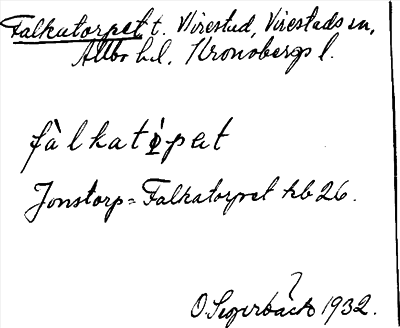 Falkatorpet t. Virestad, Virestads sn,
Allbo hd, Kronobergs l.
fàlkatòpet
Jonstorp = Falkatorpet kb 26.
O. Segerbäck 1932.